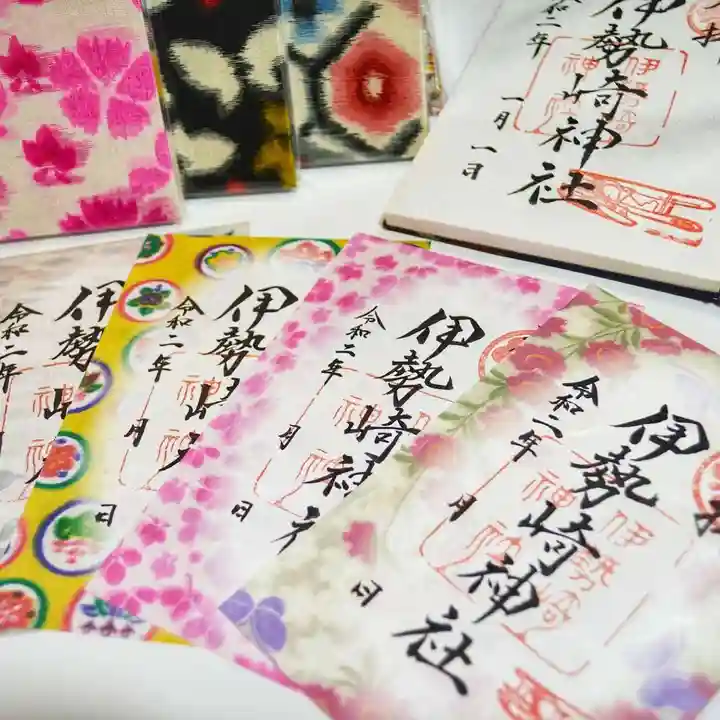 伊勢崎神社
令和二年
一月
一日
伊勢
令和二年
伊勢
令和二年
月
日
伊勢崎神
令和二年
月
日
伊勢崎神社
令和二年
月
日